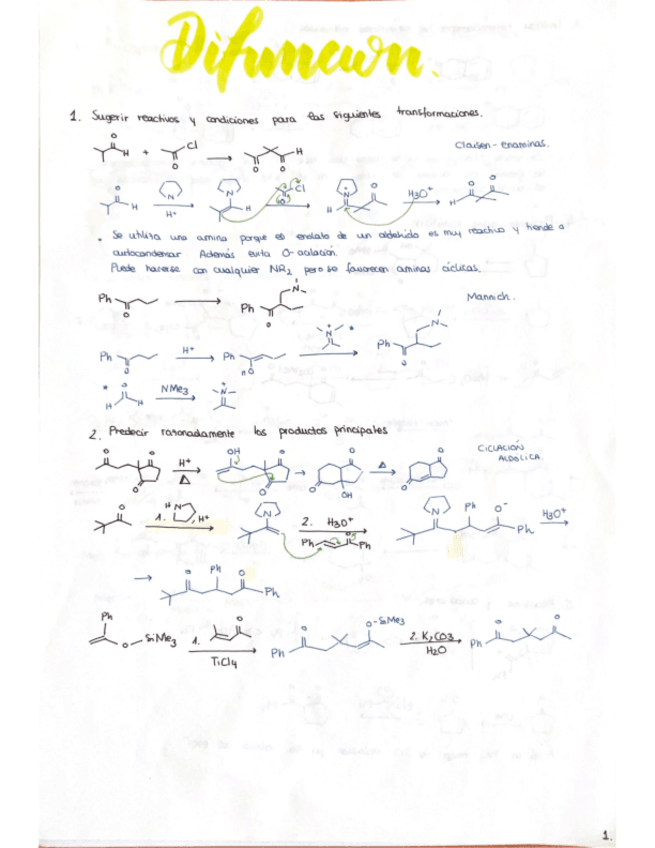 Difumciwn.
1. Sugerir reactivos y condiciones para las siguientes transformaciones.
Claisen - enaminas.
H + Cl → H
H H⁺ N H Cl N⁺ H H3O⁺ H
• Se utiliza una amina porque el enolato de un aldehido es muy reactivo y tiende a
autocondensar Además evita O-acilación.
Puede hacerse con cualquier NR2 pero se favorecen aminas cíclicas.
Ph O → Ph O N
Mannich.
Ph O H⁺ Ph HO Ph O N
* H H NMe3 N⁺
2. Predecir razonadamente los productos principales
H⁺ Δ OH O → OH Δ O
CICLACIÓN
ALDÓLICA.
1. HN, H⁺ N 2. H3O⁺ Ph Ph N Ph O⁻ Ph H3O⁺
→ O Ph O Ph
Ph O-SiMe3 1. TiCl4 Ph O O-SiMe3 2. K2CO3 H2O Ph O O
1.